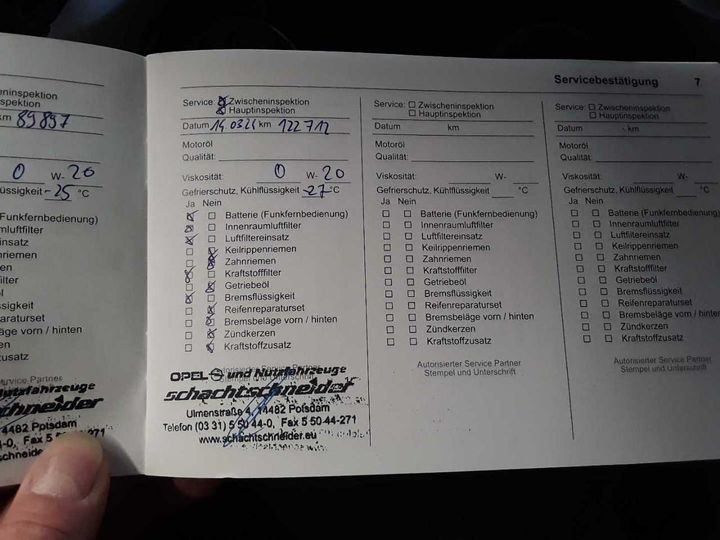 Servicebestätigung 7
eninspektion
spektion
km 89897
0 W- 20
lüssigkeit -25 °C
(Funkfernbedienung)
mluftfilter
einsatz
nriemen
en
filter
l
sigkeit
araturset
äge vorn / hinten
en
fzusatz
Service Partner
Nutzfahrzeuge
chneider
4482 Potsdam
-0, Fax 5 50 44-271
er.eu
Service: Zwischeninspektion
Hauptinspektion
Datum 14.03.24 km 122712
Motoröl
Qualität:
Viskosität: 0 W- 20
Gefrierschutz, Kühlflüssigkeit -27 °C
Ja Nein
Batterie (Funkfernbedienung)
Innenraumluftfilter
Luftfiltereinsatz
Keilrippenriemen
Zahnriemen
Kraftstofffilter
Getriebeöl
Bremsflüssigkeit
Reifenreparaturset
Bremsbeläge vorn / hinten
Zündkerzen
Kraftstoffzusatz
Autorisierter Service Partner
Stempel und Unterschrift
OPEL und Nutzfahrzeuge
schachtschneider
Ulmenstraße 4, 14482 Potsdam
Telefon (03 31) 5 50 44-0, Fax 5 50 44-271
www.schachtschneider.eu
Service: Zwischeninspektion
Hauptinspektion
Datum km
Motoröl
Qualität:
Viskosität: W-
Gefrierschutz, Kühlflüssigkeit °C
Ja Nein
Batterie (Funkfernbedienung)
Innenraumluftfilter
Luftfiltereinsatz
Keilrippenriemen
Zahnriemen
Kraftstofffilter
Getriebeöl
Bremsflüssigkeit
Reifenreparaturset
Bremsbeläge vorn / hinten
Zündkerzen
Kraftstoffzusatz
Autorisierter Service Partner
Stempel und Unterschrift
Service: Zwischeninspektion
Hauptinspektion
Datum km
Motoröl
Qualität:
Viskosität: W-
Gefrierschutz, Kühlflüssigkeit °C
Ja Nein
Batterie (Funkfernbedienung)
Innenraumluftfilter
Luftfiltereinsatz
Keilrippenriemen
Zahnriemen
Kraftstofffilter
Getriebeöl
Bremsflüssigkeit
Reifenreparaturset
Bremsbeläge vorn / hinten
Zündkerzen
Kraftstoffzusatz
Autorisierter Service Partner
Stempel und Unterschrift